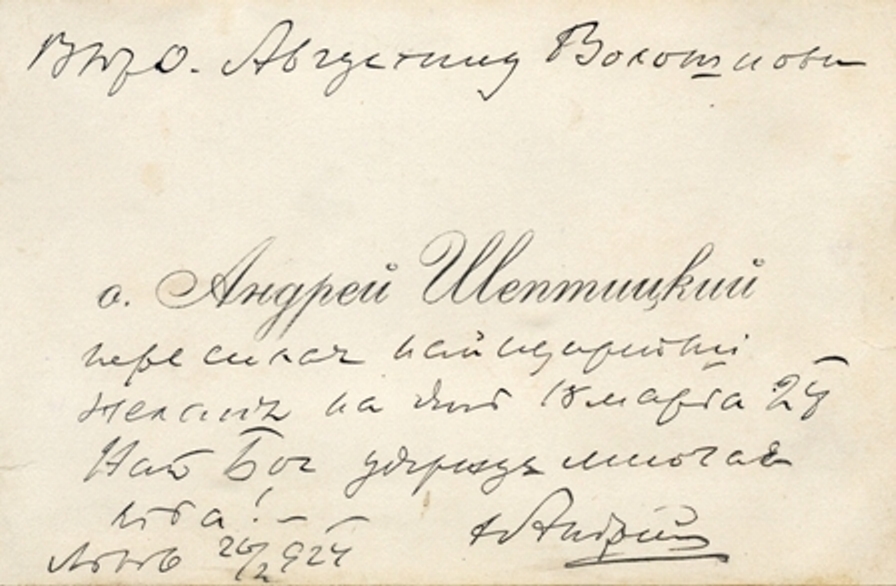 Впр О. Августину Волошинови
о. Андрей Шептицкий
пересилає найщирійші
желаня на день 18 марта 24
Най Бог удержує многая
літа! —
† Андрей
Львів 26/2 924